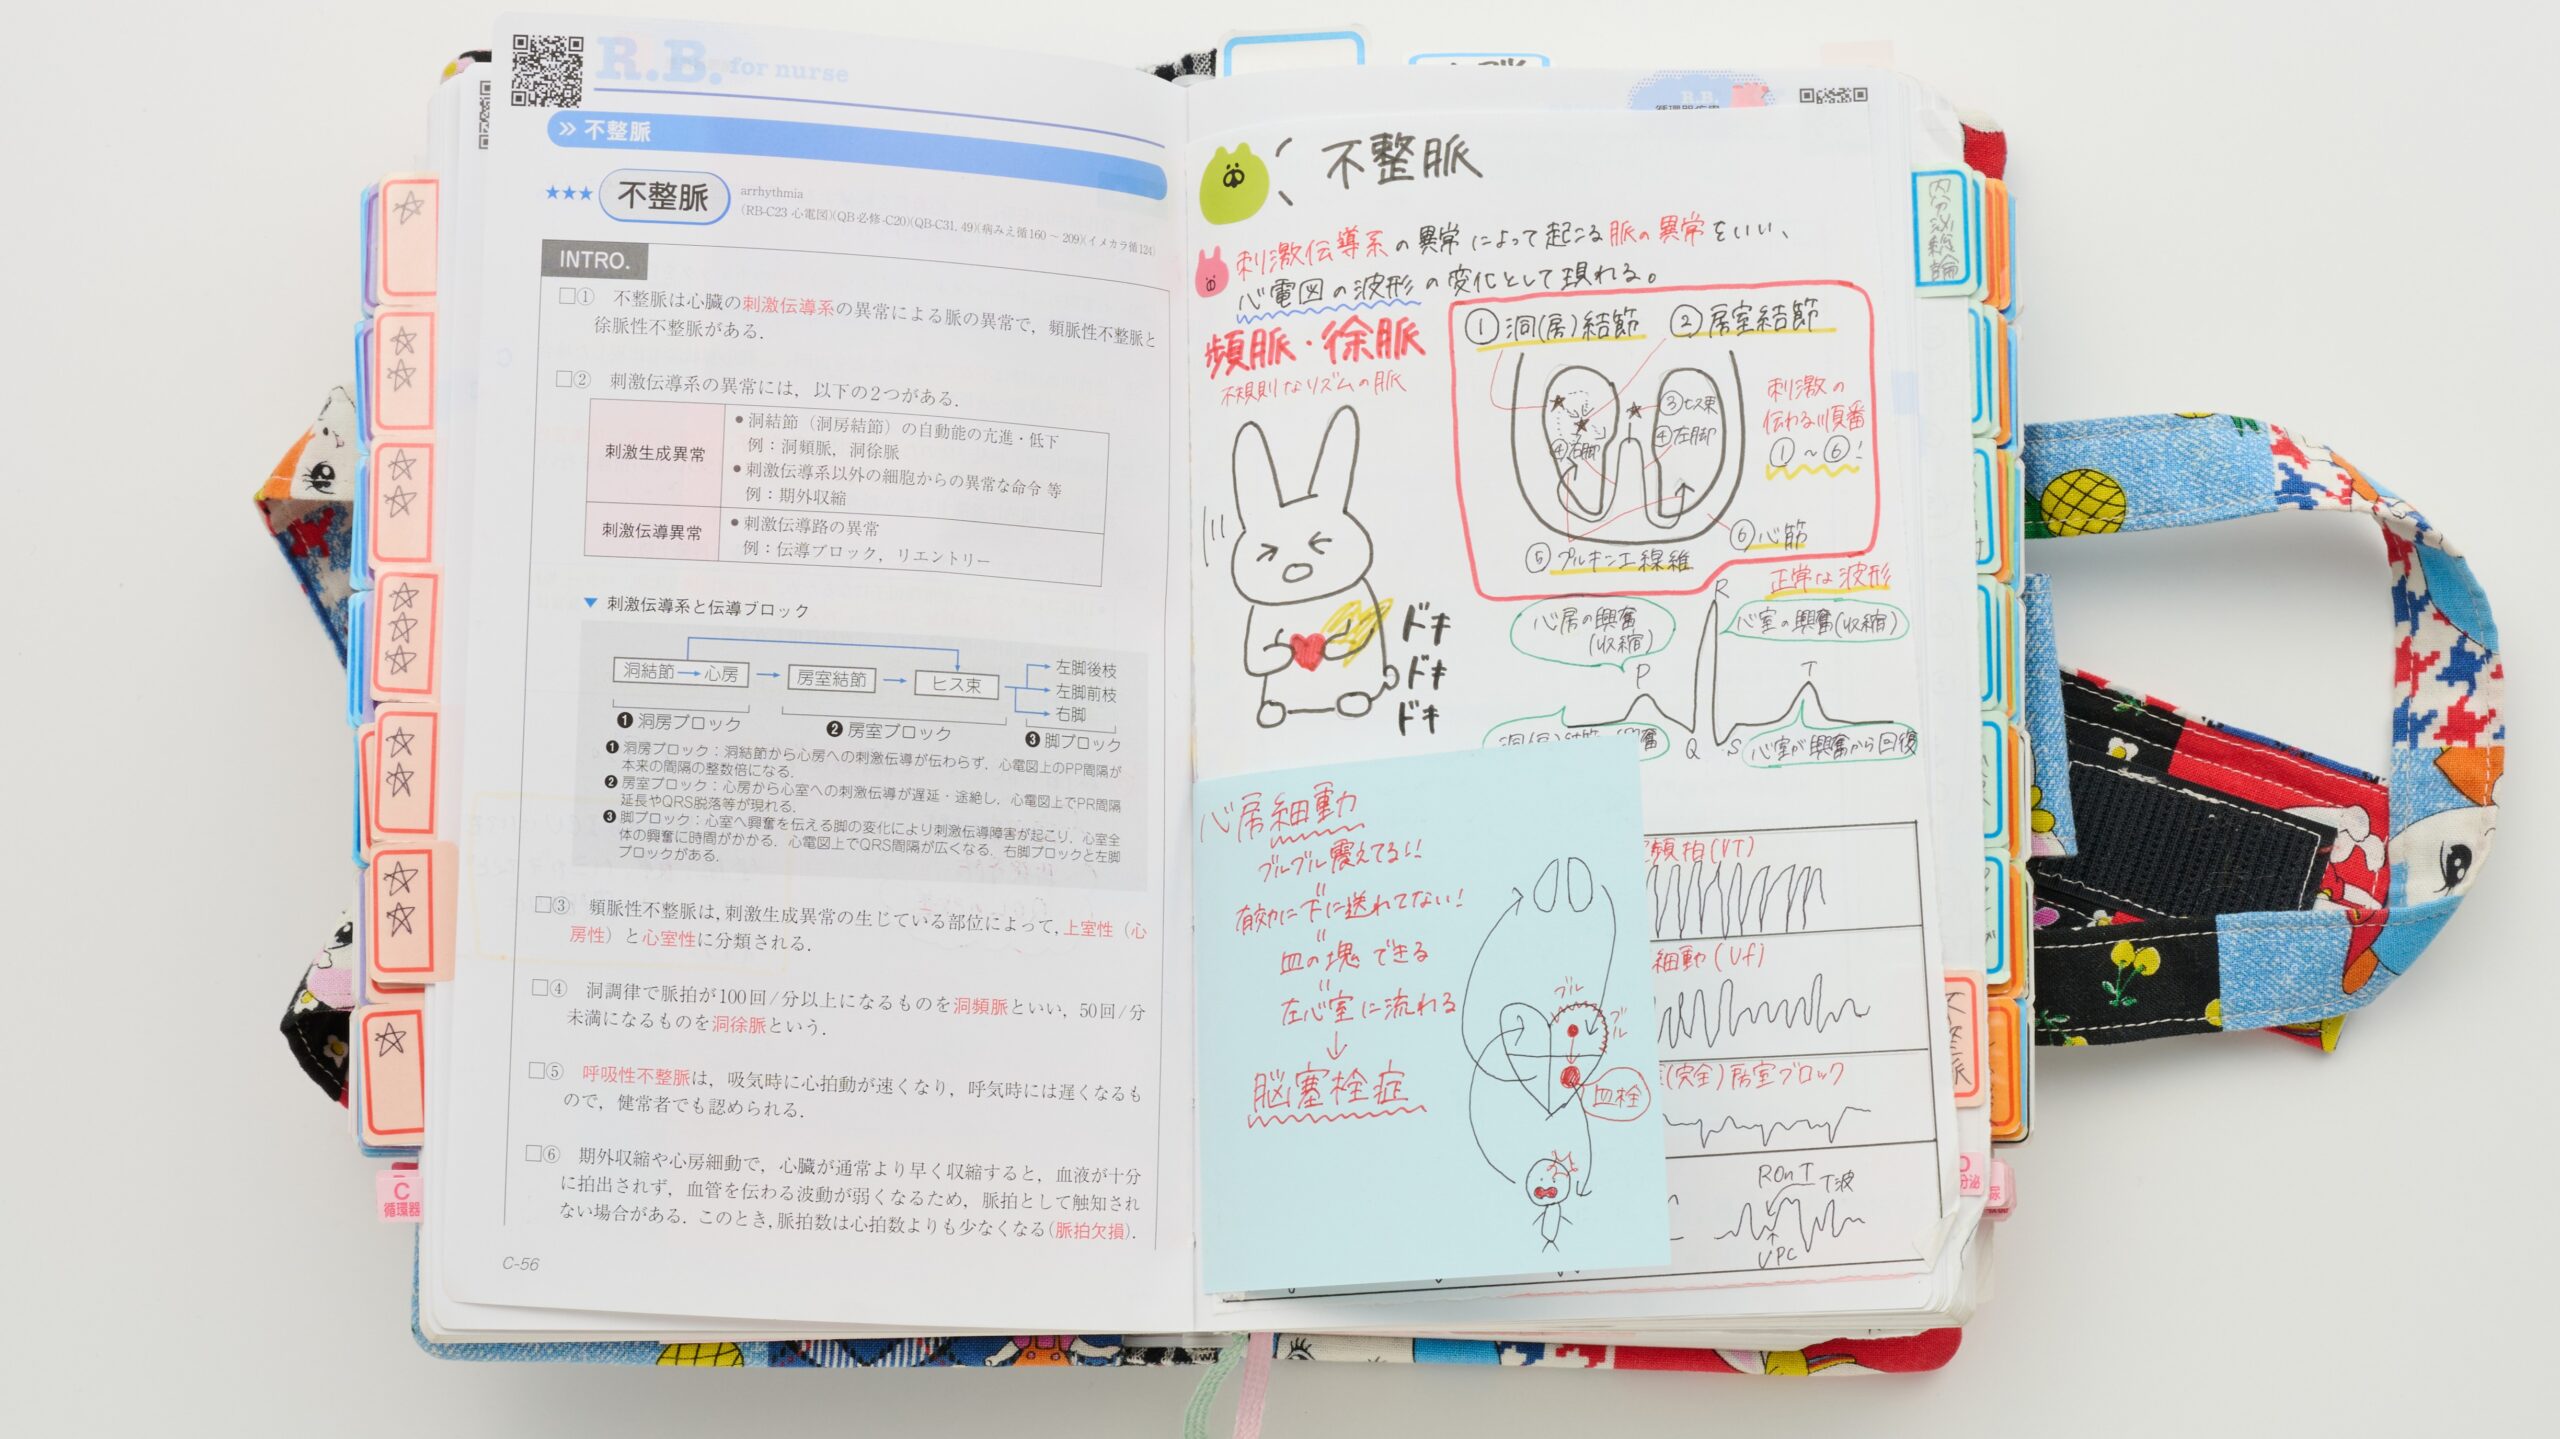 R.B. for nurse
不整脈
★★★ 不整脈 arrhythmia
(RB-C23 心電図)(QB必修-C20)(QB-C31, 49)(病みえ循160～209)(イメカラ循124)
INTRO.
□① 不整脈は心臓の刺激伝導系の異常による脈の異常で，頻脈性不整脈と
徐脈性不整脈がある．
□② 刺激伝導系の異常には，以下の2つがある．
刺激生成異常
●洞結節（洞房結節）の自動能の亢進・低下
例：洞頻脈，洞徐脈
●刺激伝導系以外の細胞からの異常な命令 等
例：期外収縮
刺激伝導異常
●刺激伝導路の異常
例：伝導ブロック，リエントリー
▼ 刺激伝導系と伝導ブロック
洞結節→心房 → 房室結節 → ヒス束
左脚後枝
左脚前枝
右脚
❶洞房ブロック ❷房室ブロック ❸脚ブロック
❶洞房ブロック：洞結節から心房への刺激伝導が伝わらず，心電図上のPP間隔が
本来の間隔の整数倍になる．
❷房室ブロック：心房から心室への刺激伝導が遅延・途絶し，心電図上でPR間隔
延長やQRS脱落等が現れる．
❸脚ブロック：心室へ興奮を伝える脚の変化により刺激伝導障害が起こり，心室全
体の興奮に時間がかかる．心電図上でQRS間隔が広くなる．右脚ブロックと左脚
ブロックがある．
□③ 頻脈性不整脈は，刺激生成異常の生じている部位によって，上室性（心
房性）と心室性に分類される．
□④ 洞調律で脈拍が100回/分以上になるものを洞頻脈といい，50回/分
未満になるものを洞徐脈という．
□⑤ 呼吸性不整脈は，吸気時に心拍動が速くなり，呼気時には遅くなるも
ので，健常者でも認められる．
□⑥ 期外収縮や心房細動で，心臓が通常より早く収縮すると，血液が十分
に拍出されず，血管を伝わる波動が弱くなるため，脈拍として触知され
ない場合がある．このとき，脈拍数は心拍数よりも少なくなる（脈拍欠損）．
C-56
C
循環器
R.B.
不整脈
刺激伝導系の異常によって起こる脈の異常をいい、
心電図の波形の変化として現れる。
頻脈・徐脈
不規則なリズムの脈
ドキ
ドキ
ドキ
①洞(房)結節 ②房室結節
③ヒス束
④右脚 ④左脚
⑤プルキンエ線維
⑥心筋
刺激の
伝わる順番
①～⑥!
正常な波形
心房の興奮
(収縮)
心室の興奮(収縮)
P
R
T
Q
S
心室が興奮から回復
心房細動
ブルブル震えてる!!
有効に下に送れてない!
血の塊できる
左心室に流れる
↓
脳塞栓症
ブル
ブル
血栓
頻拍(VT)
細動(Vf)
(完全)房室ブロック
R On T
T波
VPC
内分泌総論
不整脈